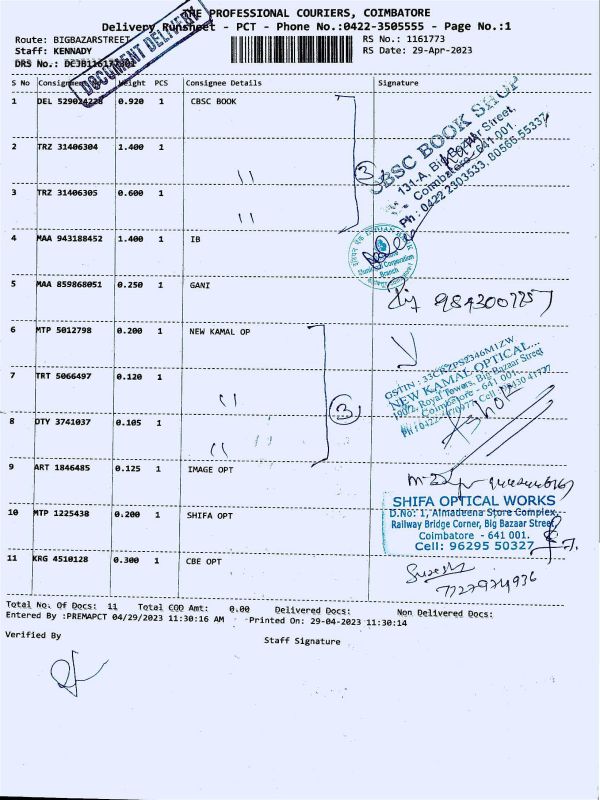 THE PROFESSIONAL COURIERS, COIMBATORE
Delivery Runsheet - PCT - Phone No.:0422-3505555 - Page No.:1
Route: BIGBAZARSTREET
RS No.: 1161773
Staff: KENNADY
RS Date: 29-Apr-2023
DRS No.:
DOCUMENT DELIVERY
S No Consignment Weight PCS Consignee Details Signature
1 DEL 529024228 0.920 1 CBSC BOOK
2 TRZ 31406304 1.400 1 "
3 TRZ 31406305 0.600 1 "
3
CBSC BOOK SHOP
131-A, Big Bazaar Street,
Coimbatore - 641 001.
Ph : 0422 2303533, 80566 55337
4 MAA 943188452 1.400 1 IB
Municipal Corporation
Branch
5 MAA 859868051 0.250 1 GANI
6 MTP 5012798 0.200 1 NEW KAMAL OP
7 TRT 5066497 0.120 1 "
8 DTY 3741037 0.105 1 "
3
NEW KAMAL OPTICAL...
Royal Towers, Big Bazaar Street
Coimbatore - 641 001.
Ashok
9 ART 1846485 0.125 1 IMAGE OPT
10 MTP 1225438 0.200 1 SHIFA OPT
SHIFA OPTICAL WORKS
D.No: 1, Almadeena Store Complex,
Railway Bridge Corner, Big Bazaar Street,
Coimbatore - 641 001.
Cell: 96295 50327
11 KRG 4510128 0.300 1 CBE OPT
Suresh
Total No. Of Docs: 11 Total COD Amt: 0.00 Delivered Docs: Non Delivered Docs:
Entered By :PREMAPCT 04/29/2023 11:30:16 AM Printed On: 29-04-2023 11:30:14
Verified By
Staff Signature